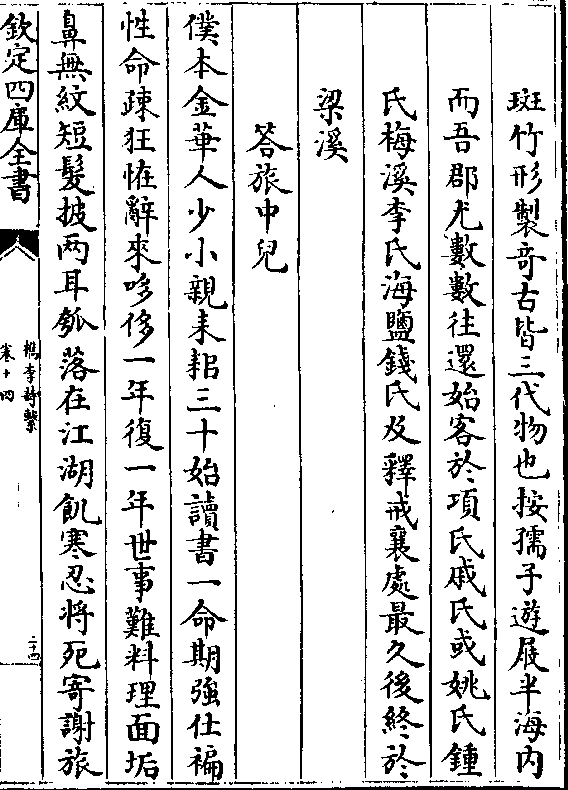 斑竹形製奇古皆三代物也按孺子遊屐半海内
而吾郡尤數數往還始客於項氏戚氏或姚氏鍾
氏梅溪李氏海鹽錢氏及釋戒襄處最久後終於
梁溪
答旅中兒
僕本金華人少小親耒耜三十始讀書一命期強仕褊
性命疎狂恠辭來哆侈一年復一年世事難料理面垢
鼻無紋短髮披两耳瓠落在江湖飢寒忍將死寄謝旅
欽定四庫全書
檇李詩繫
卷十四
二十四